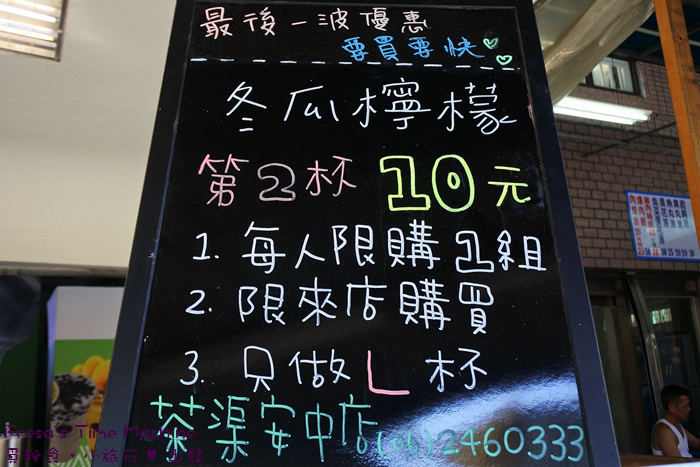 最後一波優惠
要買要快
冬瓜檸檬
第2杯 10元
1. 每人限購1組
2. 限來店購買
3. 只做L杯
茶渠安中店(06)2460333
Presa's Time Machine